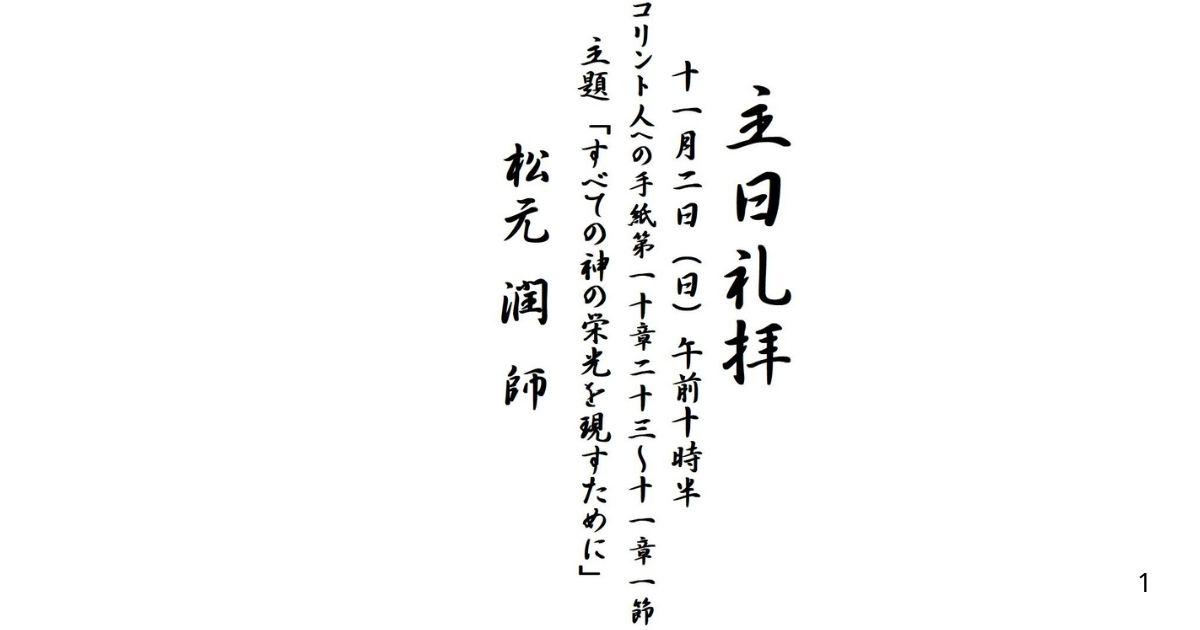 主日礼拝
十一月二日（日）午前十時半
コリント人への手紙第一十章二十三～十一章一節
主題「すべての神の栄光を現すために」
松元 潤 師
1